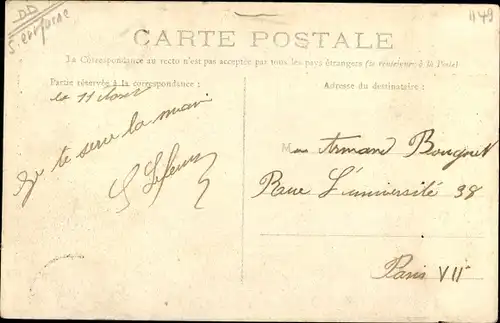 DD
1149
CARTE POSTALE
La Correspondance au recto n'est pas acceptée par tous les pays étrangers (se renseigner à la Poste)
Partie réservée à la correspondance :
Adresse du destinataire :
le 11
Je te serre la main
Mme Arman Bouquet
Rue L'université 38
Paris VII